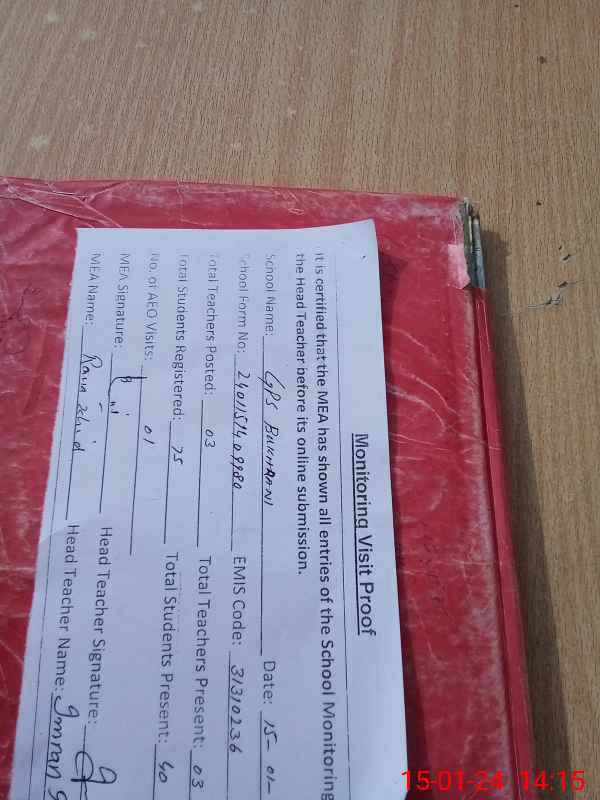 Monitoring Visit Proof
It is certified that the MEA has shown all entries of the School Monitoring
the Head Teacher before its online submission.
School Name: GPS BUKHRANI Date: 15-01-
School Form No: EMIS Code: 31310236
Total Teachers Posted: 03 Total Teachers Present: 03
Total Students Registered: 75 Total Students Present: 40
No. of AEO Visits: 01
MEA Signature: Head Teacher Signature:
MEA Name: Head Teacher Name: Imran
15-01-24 14:15